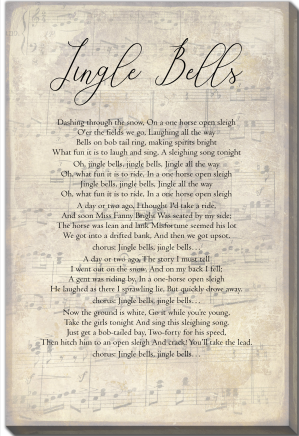 Jingle Bells
Dashing through the snow, On a one horse open sleigh
O'er the fields we go, Laughing all the way
Bells on bob tail ring, making spirits bright
What fun it is to laugh and sing, A sleighing song tonight
Oh, jingle bells, jingle bells, Jingle all the way
Oh, what fun it is to ride, In a one horse open sleigh
Jingle bells, jingle bells, Jingle all the way
Oh, what fun it is to ride, In a one horse open sleigh
A day or two ago, I thought I'd take a ride,
And soon Miss Fanny Bright Was seated by my side;
The horse was lean and lank Misfortune seemed his lot
We got into a drifted bank, And then we got upsot,
chorus: Jingle bells, jingle bells…
A day or two ago, The story I must tell
I went out on the snow, And on my back I fell;
A gent was riding by, In a one-horse open sleigh
He laughed as there I sprawling lie, But quickly drove away.
chorus: Jingle bells, jingle bells…
Now the ground is white, Go it while you're young,
Take the girls tonight And sing this sleighing song,
Just get a bob-tailed bay, Two-forty for his speed,
Then hitch him to an open sleigh And crack! You'll take the lead.
chorus: Jingle bells, jingle bells…